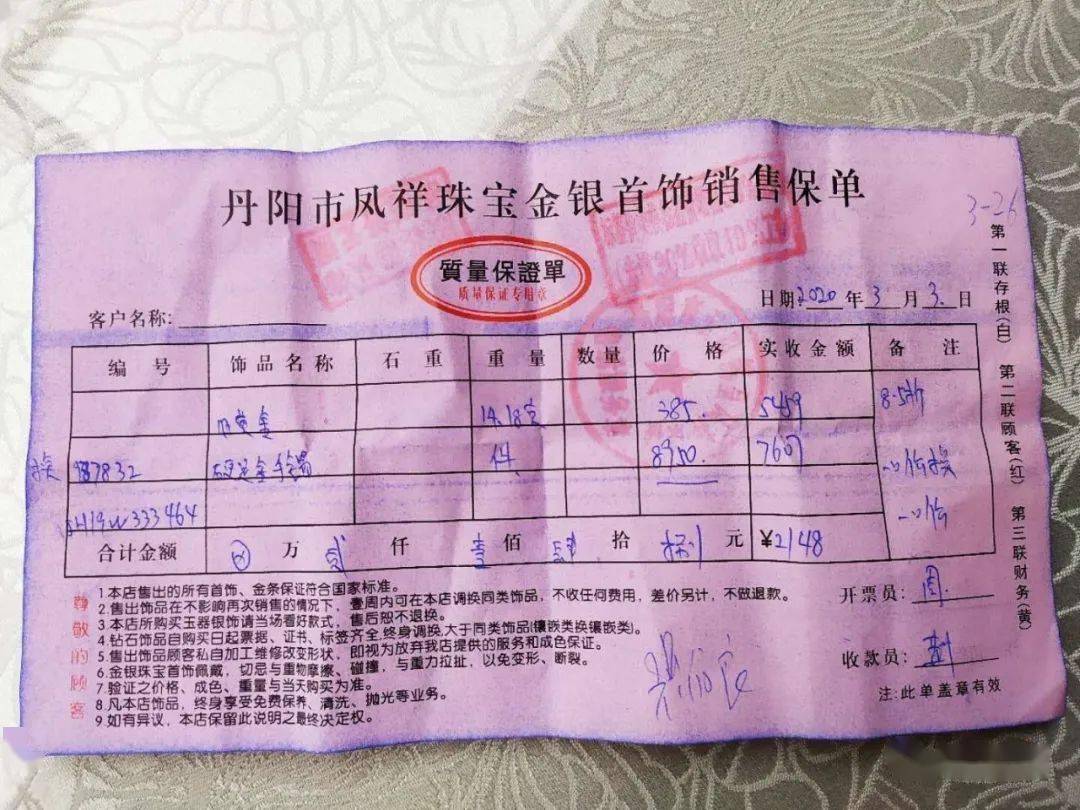 丹阳市凤祥珠宝金银首饰销售保单
3-26
質量保證單
质量保证专用章
客户名称:
日期 2020 年 3 月 3. 日
编号 饰品名称 石重 重量 数量 价格 实收金额 备注
14.18克 385. 5459 8.5折
换 987832 硬足金手镯 14. 8950. 7607
合计金额 万 贰 仟 壹 佰 肆 拾 捌 元 ¥2148
尊敬的顾客
1.本店售出的所有首饰、金条保证符合国家标准。
2.售出饰品在不影响再次销售的情况下，壹周内可在本店调换同类饰品，不收任何费用，差价另计，不做退款。
3.本店所购买玉器银饰请当场看好款式，售后恕不退换。
4.钻石饰品自购买日起票据、证书、标签齐全,终身调换,大于同类饰品(镶嵌类换镶嵌类)。
5.售出饰品顾客私自加工维修改变形状，即视为放弃我店提供的服务和成色保证。
6.金银珠宝首饰佩戴，切忌与重物摩擦、碰撞，与重力拉扯，以免变形、断裂。
7.验证之价格、成色、重量与当天购买为准。
8.凡本店饰品，终身享受免费保养、清洗、抛光等业务。
9.如有异议，本店保留此说明之最终决定权。
开票员: 周
收款员:
注:此单盖章有效
第一联存根(白) 第二联顾客(红) 第三联财务(黄)